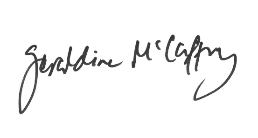 Geraldine McCaffrey